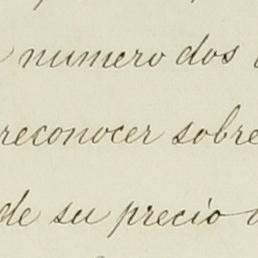 numero dos
reconocer sobre
de su precio